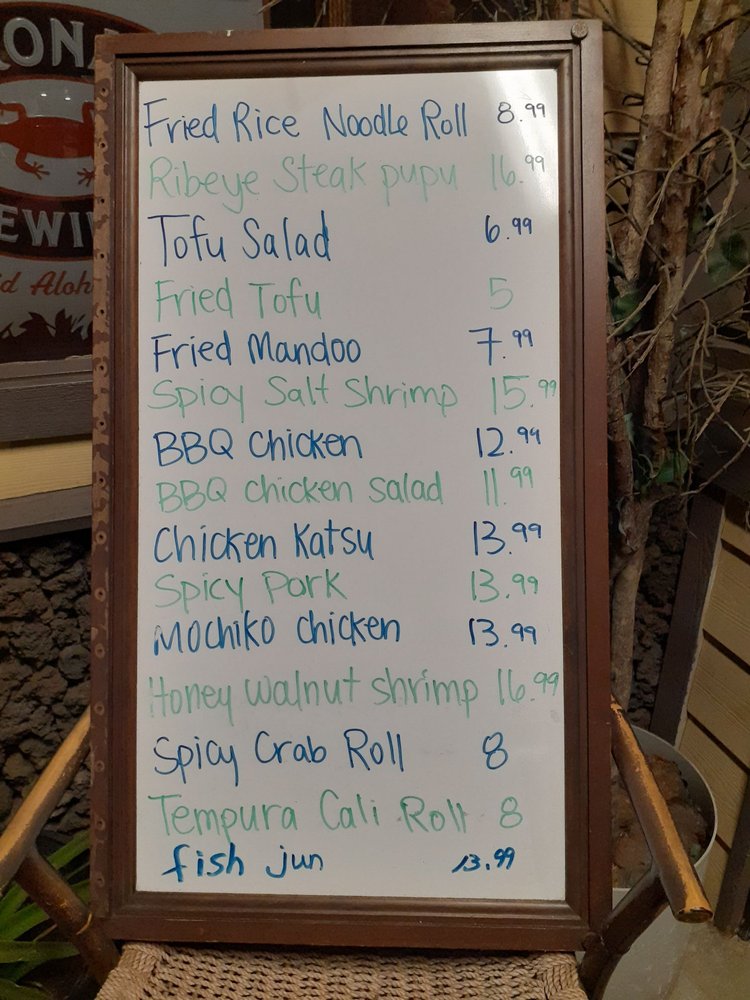 KONA
BREWING
Liquid Aloha
Fried Rice Noodle Roll 8.99
Ribeye Steak pupu 16.99
Tofu Salad 6.99
Fried Tofu 5
Fried Mandoo 7.99
Spicy Salt Shrimp 15.99
BBQ Chicken 12.99
BBQ chicken salad 11.99
Chicken Katsu 13.99
Spicy Pork 13.99
Mochiko chicken 13.99
Honey walnut shrimp 16.99
Spicy Crab Roll 8
Tempura Cali Roll 8
fish jun 13.99